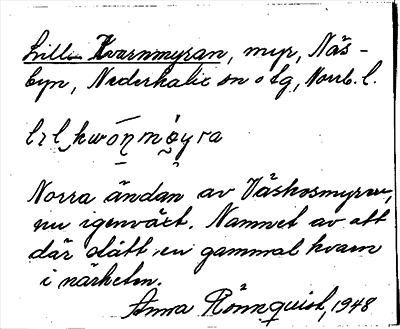 Lilla Kvarnmyran, myr, Näs-
byn, Nederkalix sn o tg, Norrb. l.
Norra ändan av Väskosmyren,
nu igenväxt. Namnet av att
där stått en gammal kvarn
i närheten.
Anna Rönnquist, 1948